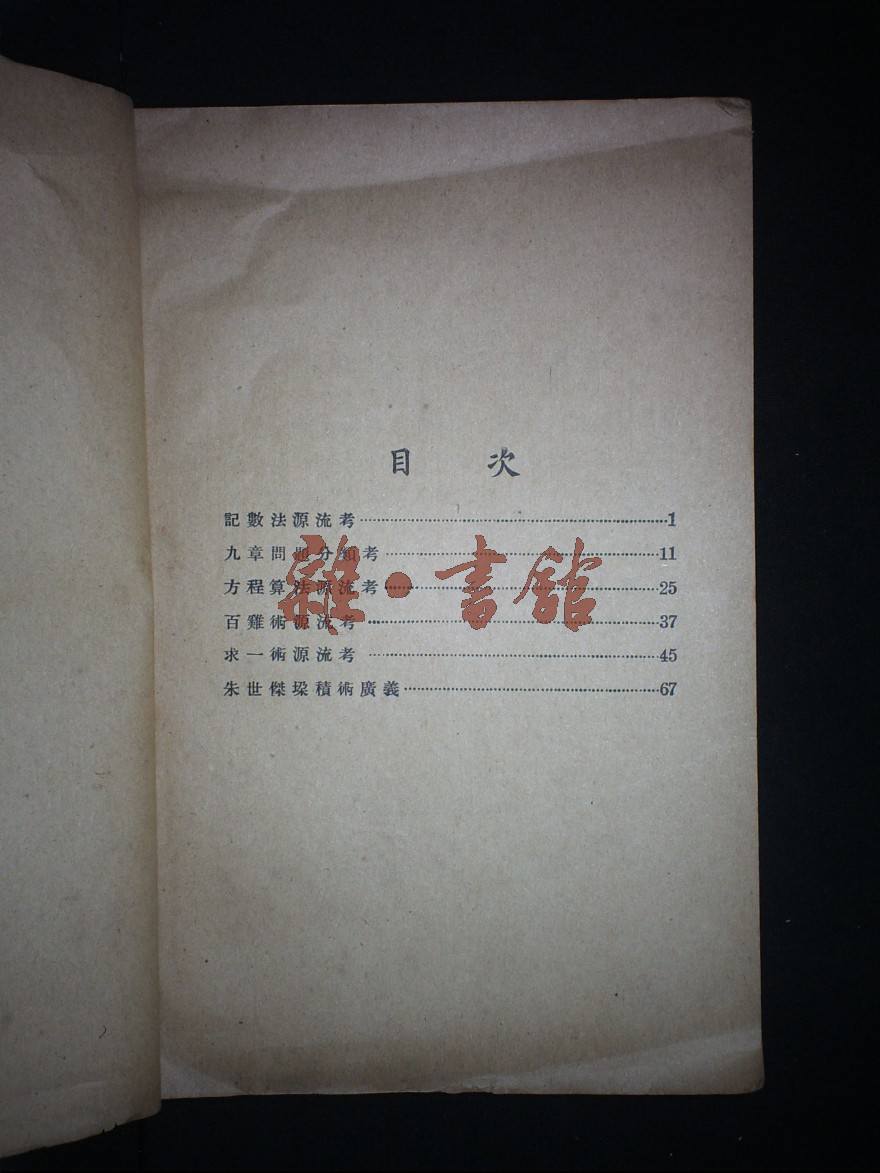 目 次
記數法源流考……1
九章問題分類考……11
方程算法源流考……25
百雞術源流考……37
求一術源流考……45
朱世傑垜積術廣義……67
雜·書館